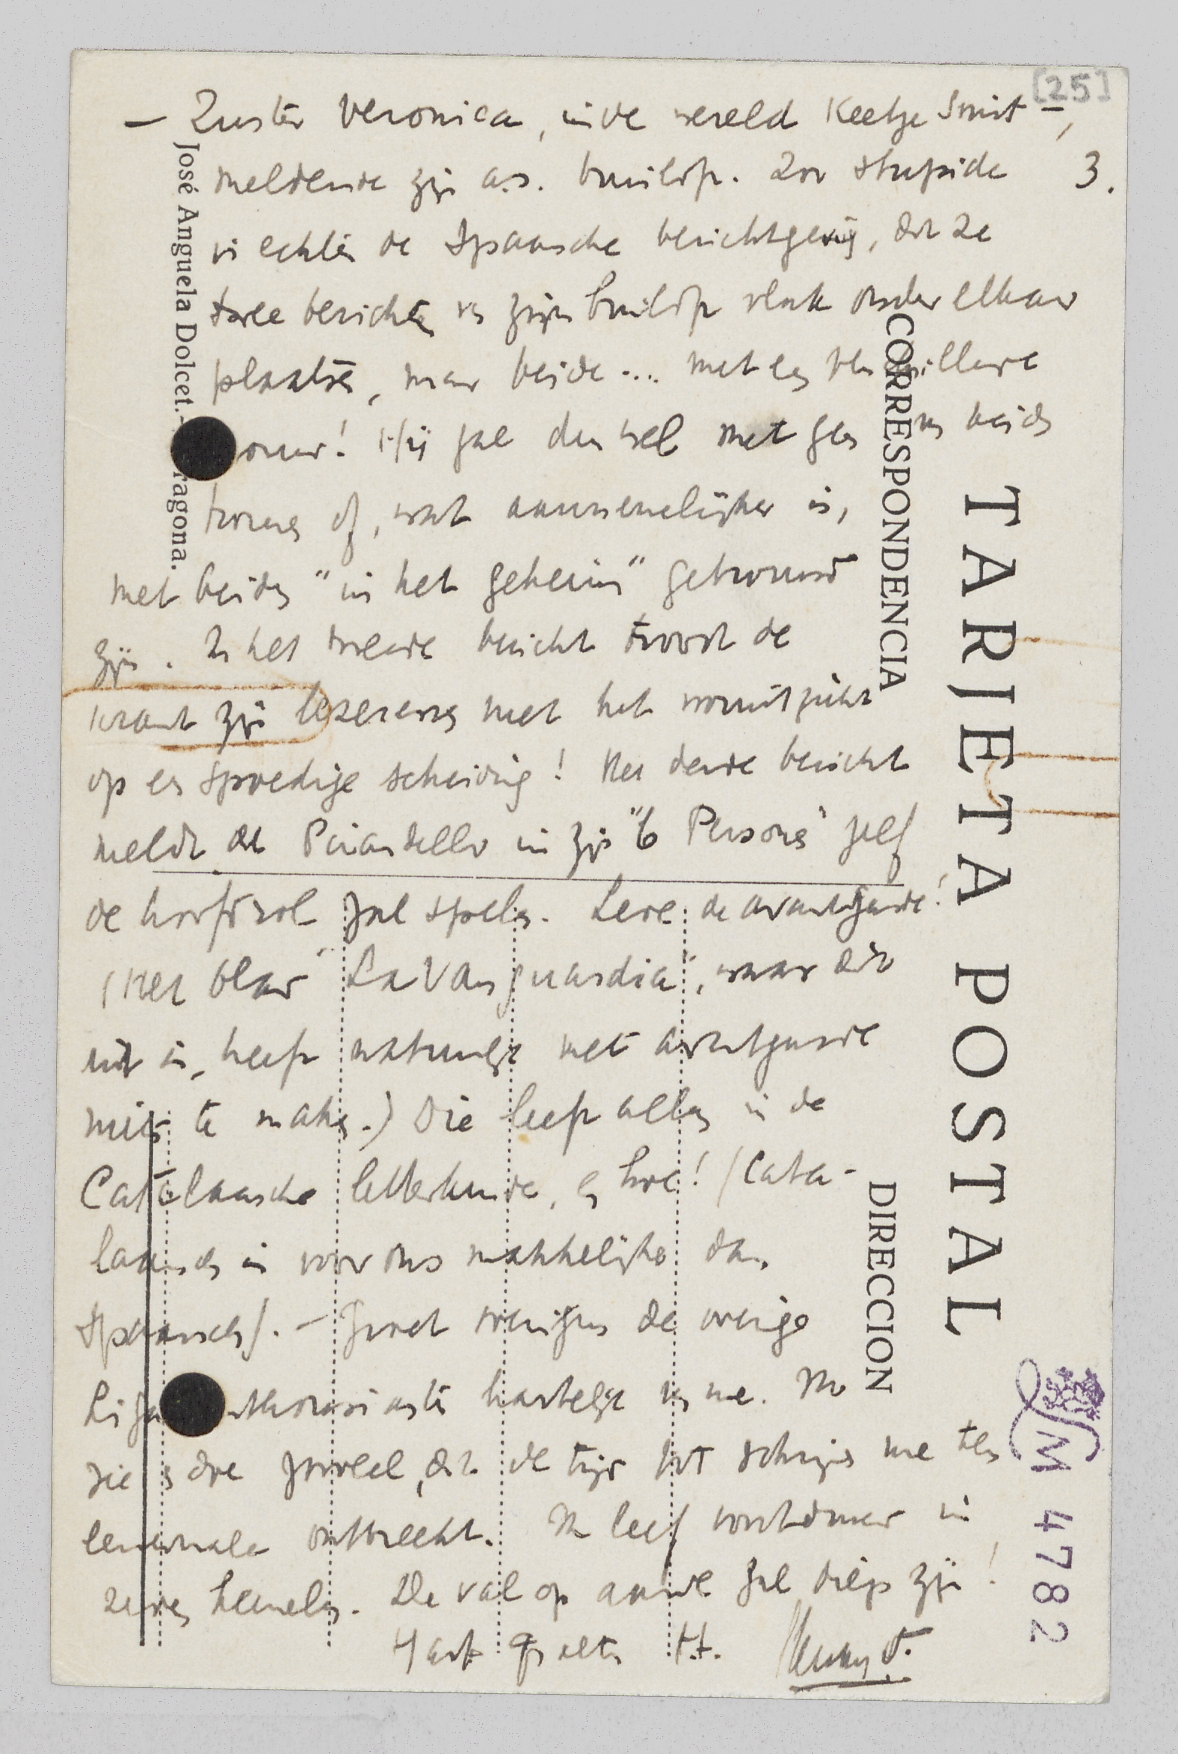 [25]
— Zuster Veronica, in de wereld Keetje Smit —,
3.
meldende zijn a.s. bruiloft. Zoo stupide
is echter de Spaansche berichtgeving, dat ze
twee berichten zijn bruiloft vlak onder elkaar
plaatsen, maar beide ... met een
! Hij zal dus wel met geen van beide
trouwen of, wat aannemelijker is,
met beiden "in het geheim" getrouwd
zijn. In het tweede bericht troost de
krant zijn lezeressen met het vooruitzicht
op een spoedige scheiding! Het derde bericht
meldt dat Pirandello in zijn "6 Personen" zelf
de hoofdrol zal spelen. Leve de avantgarde!
(Het blad "La Vanguardia", waar dit
uit is, heeft natuurlijk met avantgarde
niets te maken.) Die leeft alleen in de
Catalaansche letterkunde, en hoe! (Cata-
laansch is voor ons makkelijker dan
Spaansch). — Groet de overige
hartelijk van me. Ik
zie en doe zooveel, dat de tijd tot schrijven me ten
eenenmale ontbreekt. Ik leef voortdurend in
zeven hemelen. De val op aarde zal diep zijn!
Hart. groeten t.t.
José Anguela Dolcet.- ragona.
TARJETA POSTAL
CORRESPONDENCIA
DIRECCION
M 4782